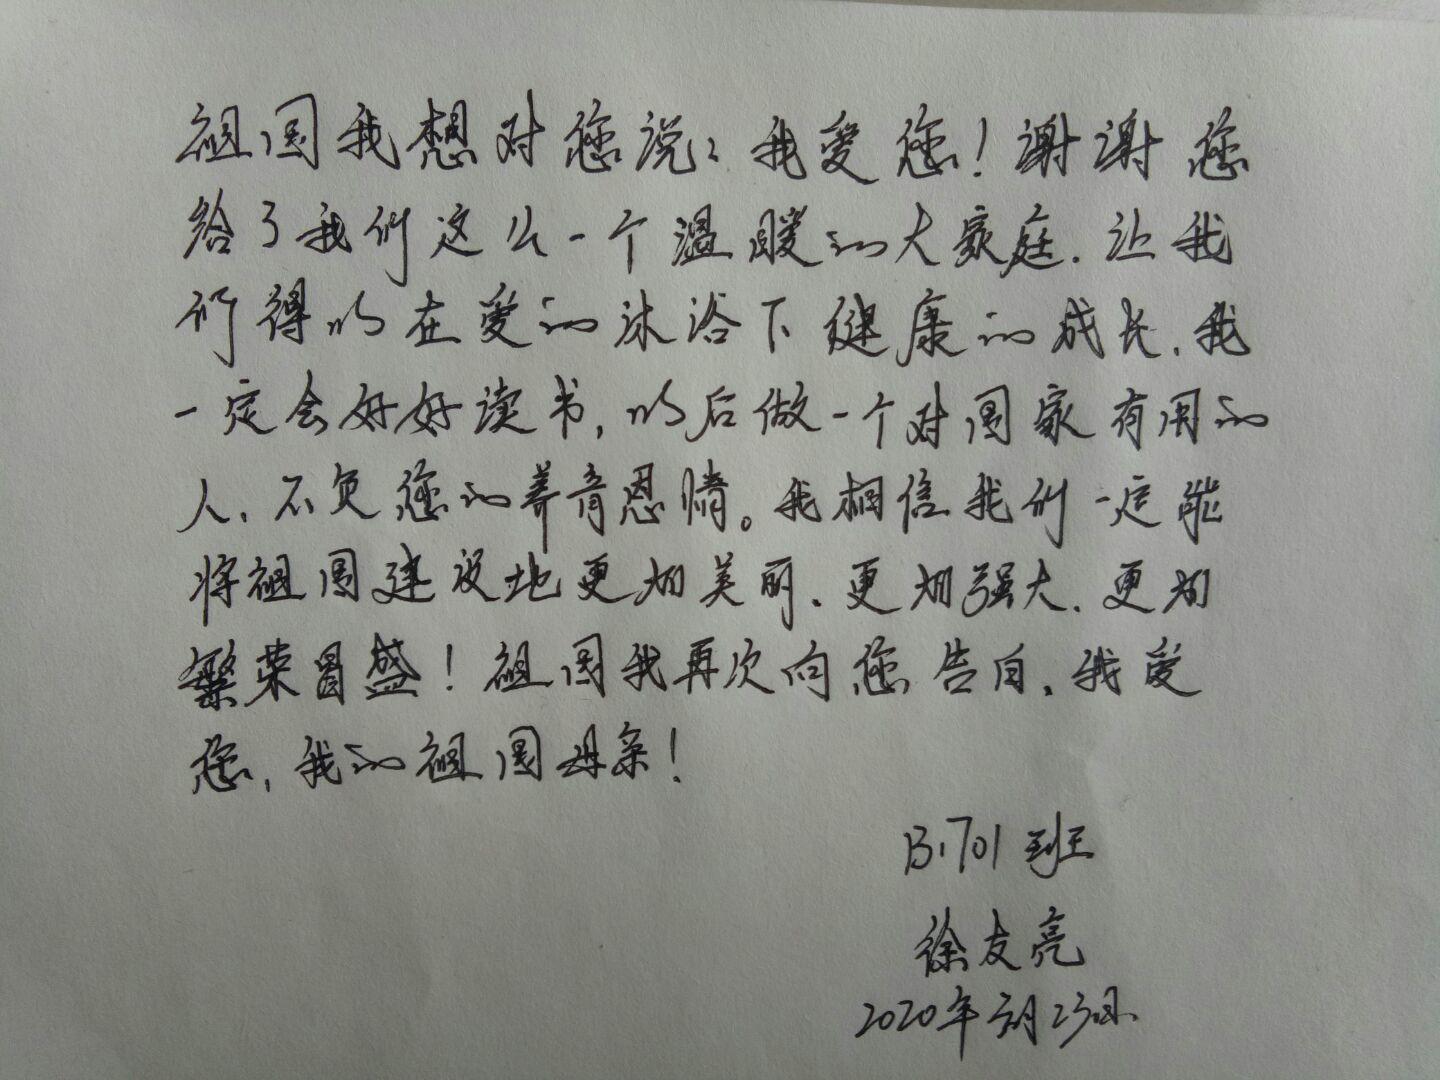 祖国我想对您说：我爱您！谢谢您
给了我们这么一个温暖的大家庭，让我
们得以在爱的沐浴下健康的成长，我
一定会好好读书，以后做一个对国家有用的
人，不负您的养育恩情。我相信我们一定能
将祖国建设地更加美丽，更加强大，更加
繁荣冒盛！祖国我再次向您告白，我爱
您，我的祖国母亲！
B1701班
徐友亮
2020年3月23日